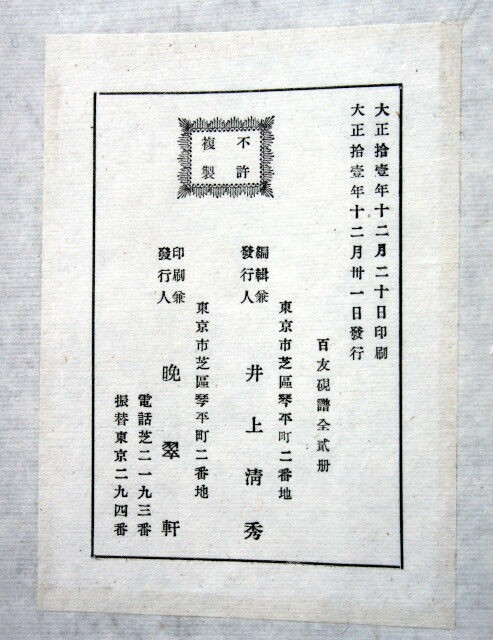 大正拾壹年十二月二十日印刷
大正拾壹年十二月卅一日發行
百友硯譜全貳册
不許
複製
東京市芝區琴平町二番地
編輯兼
發行人
井上淸秀
東京市芝區琴平町二番地
印刷兼
發行人
晚翠軒
電話芝二一九三番
振替東京二九四番